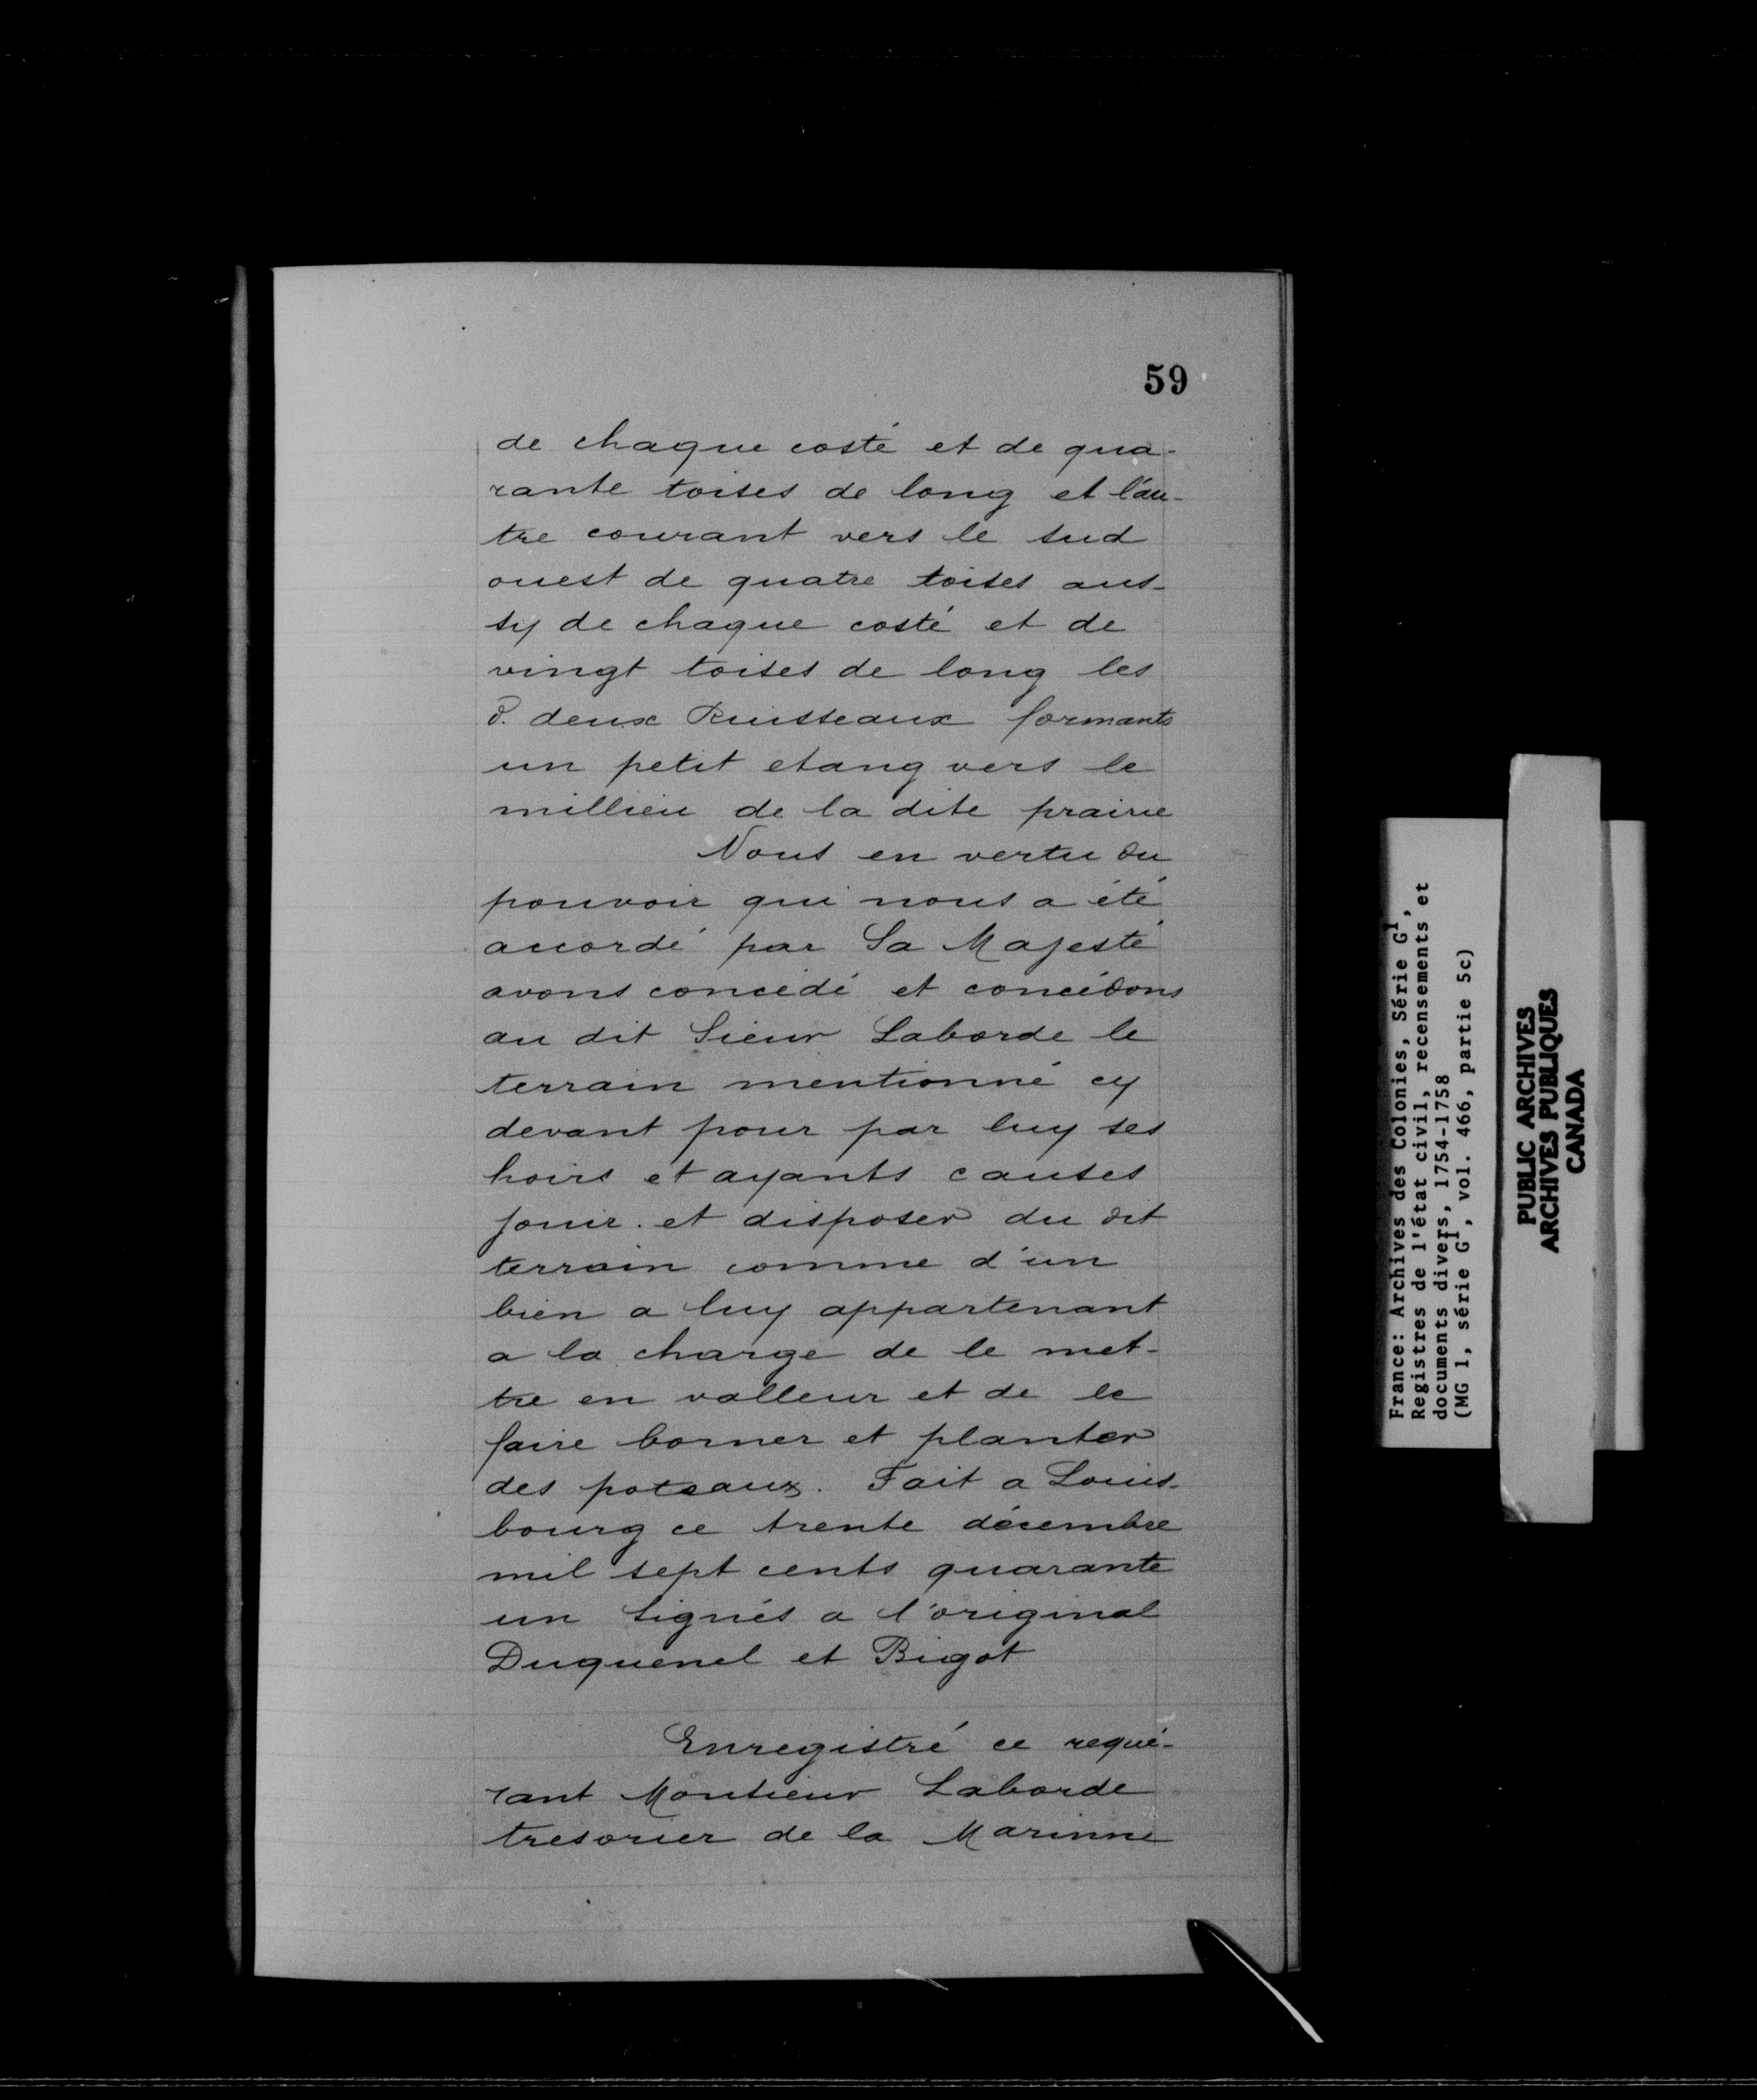 59
de chaque costé et de qua-
rante toises de long et l'au-
tre courant vers le sud
ouest de quatre toises aus-
sy de chaque costé et de
vingt toises de long les
d. deux Ruisseaux formants
un petit etang vers le
millieu de la dite prairie
Nous en vertu du
pouvoir qui nous a été
accordé par Sa Majesté
avons concédé et concédons
au dit Sieur Laborde le
terrain mentionné cy
devant pour par luy ses
hoirs et ayants causes
jouir. et disposer du dit
terrain comme d'un
bien a luy appartenant
a la charge de le met-
tre en valleur et de le
faire borner et planter
des poteaux. Fait a Louis-
bourg ce trente décembre
mil sept cents quarante
un signés a l'original
Duquenel et Bigot
Enregistré ce requé-
rant Monsieur Laborde
tresorier de la Marinne
France: Archives des Colonies, Série G¹,
Registres de l'état civil, recensements et
documents divers, 1754-1758
(MG 1, série G¹, vol. 466, partie 5c)
PUBLIC ARCHIVES
ARCHIVES PUBLIQUES
CANADA